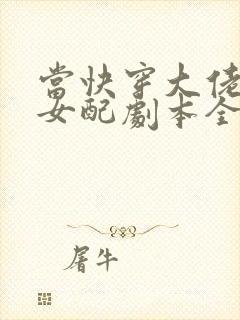 當快穿大佬
女配劇本全
屠牛